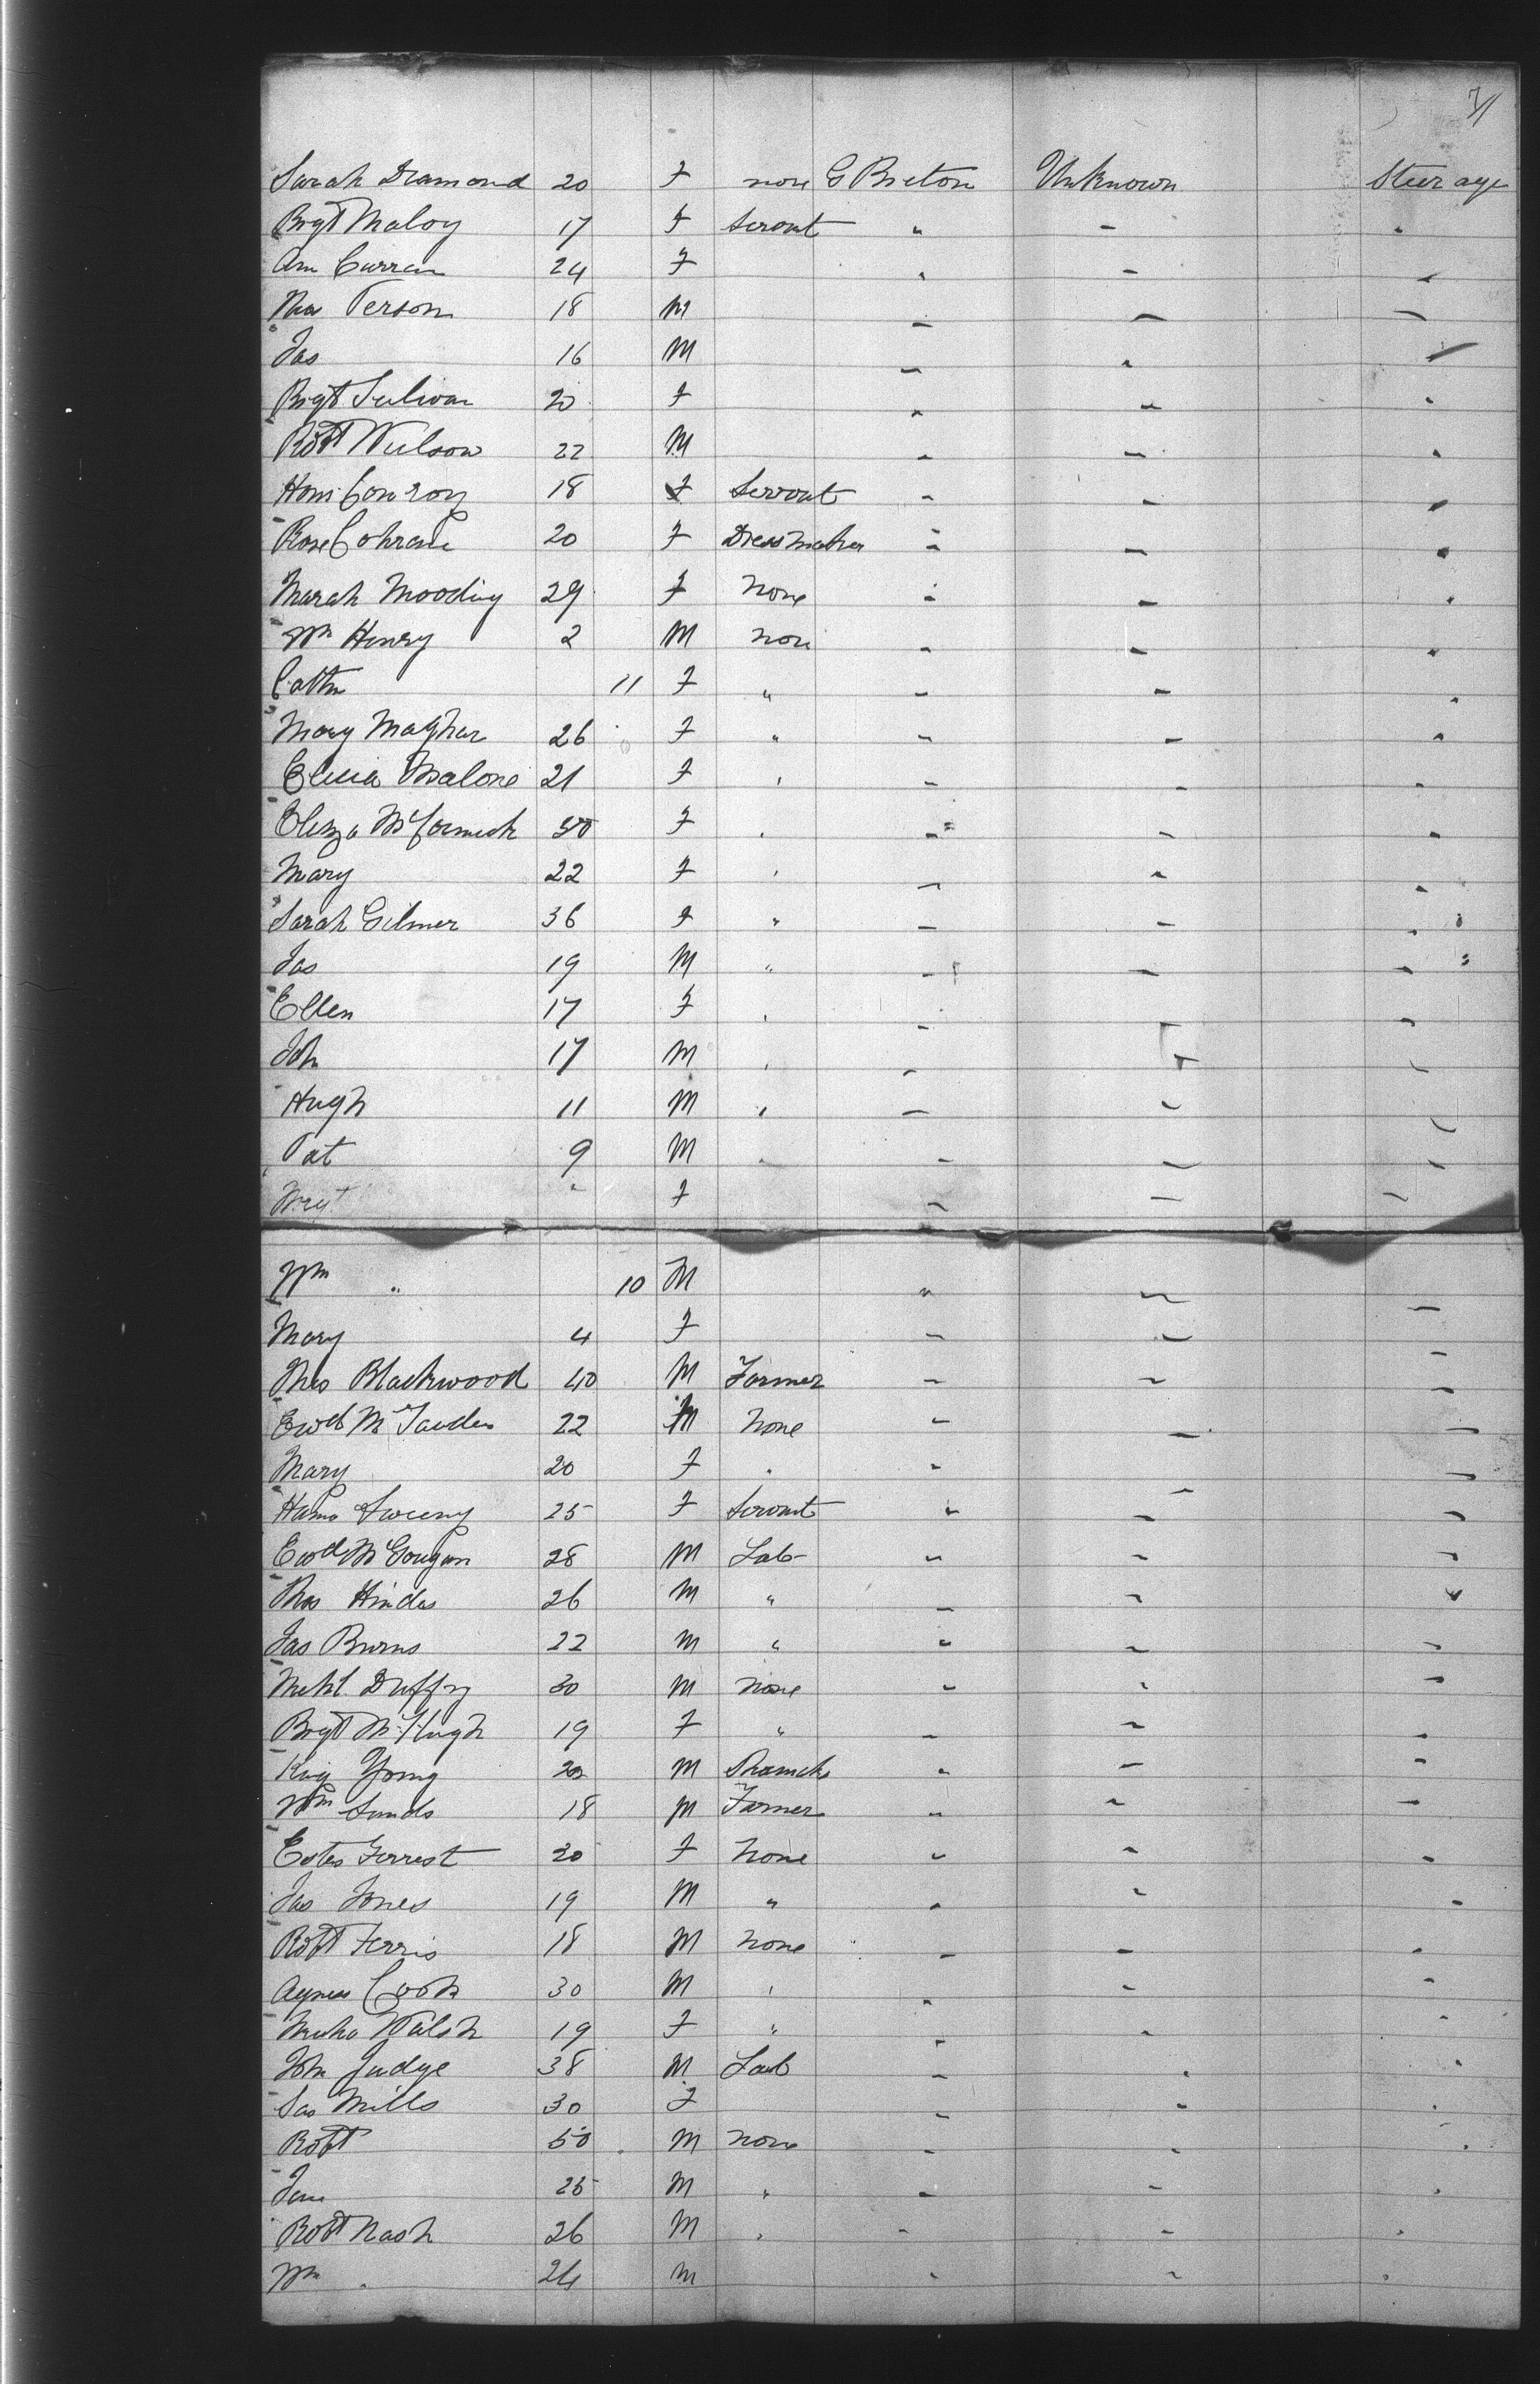 71
Sarah Diamond 20 F none G Breton Unknown Steerage
Brgt Maloy 17 F Servnt " " "
Ann Curran 24 F " " "
Person 18 M " " "
Jas 16 M " " "
Brgt Sulivan 20 F " " "
Robt Wilson 22 M " " "
Conroy 18 F Servant " " "
Rose Cohrane 20 F Dressmaker " " "
Sarah Mooding 29 F None " " "
Wm Henry 2 M non " " "
Cathn 11 F " " " "
Mary Maghar 26 F " " " "
Malone 21 F " " " "
Eliza McCormick 50 F " " " "
Mary 22 F " " " "
Sarah Gilmer 36 F " " " "
Jas 19 M " " " "
Ellen 17 F " " " "
Joh 17 M " " " "
Hugh 11 M " " " "
Pat 9 M " " " "
F " " "
Wm " 10 M " " "
Mary 4 F " " "
Thos Blackwood 40 M Farmer " " "
Ewd 22 M None " " "
Mary 20 F " " " "
Sweeny 25 F Servnt " " "
Ewd McGougan 28 M Lab " " "
Thos Hindes 26 M " " " "
Jas Burns 22 M " " " "
Michl Duffy 30 M None " " "
Brgt McHugh 19 F " " " "
King Young 22 M " " "
Wm Sands 18 M Farmer " " "
Forrest 20 F None " " "
Jas Jones 19 M " " " "
Robt Ferris 18 M None " " "
Agness Cook 30 M " " " "
Walsh 19 F " " " "
Joh Judge 38 M Lab " " "
Mills 30 F " " "
Robt 50 M None " " "
Jane 25 M " " " "
Robt Nash 26 M " " " "
Wm " 24 M " " "